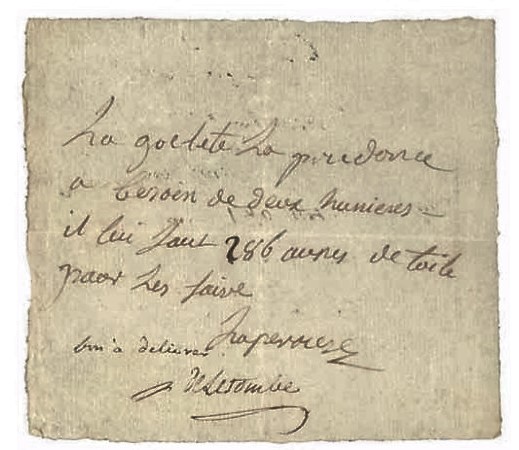 La goelete La prudence
a besoin de deux hunieres
il lui faut 286 aunes de toile
pour les faire
Laperriere
bon à délivrer
DeLetombe